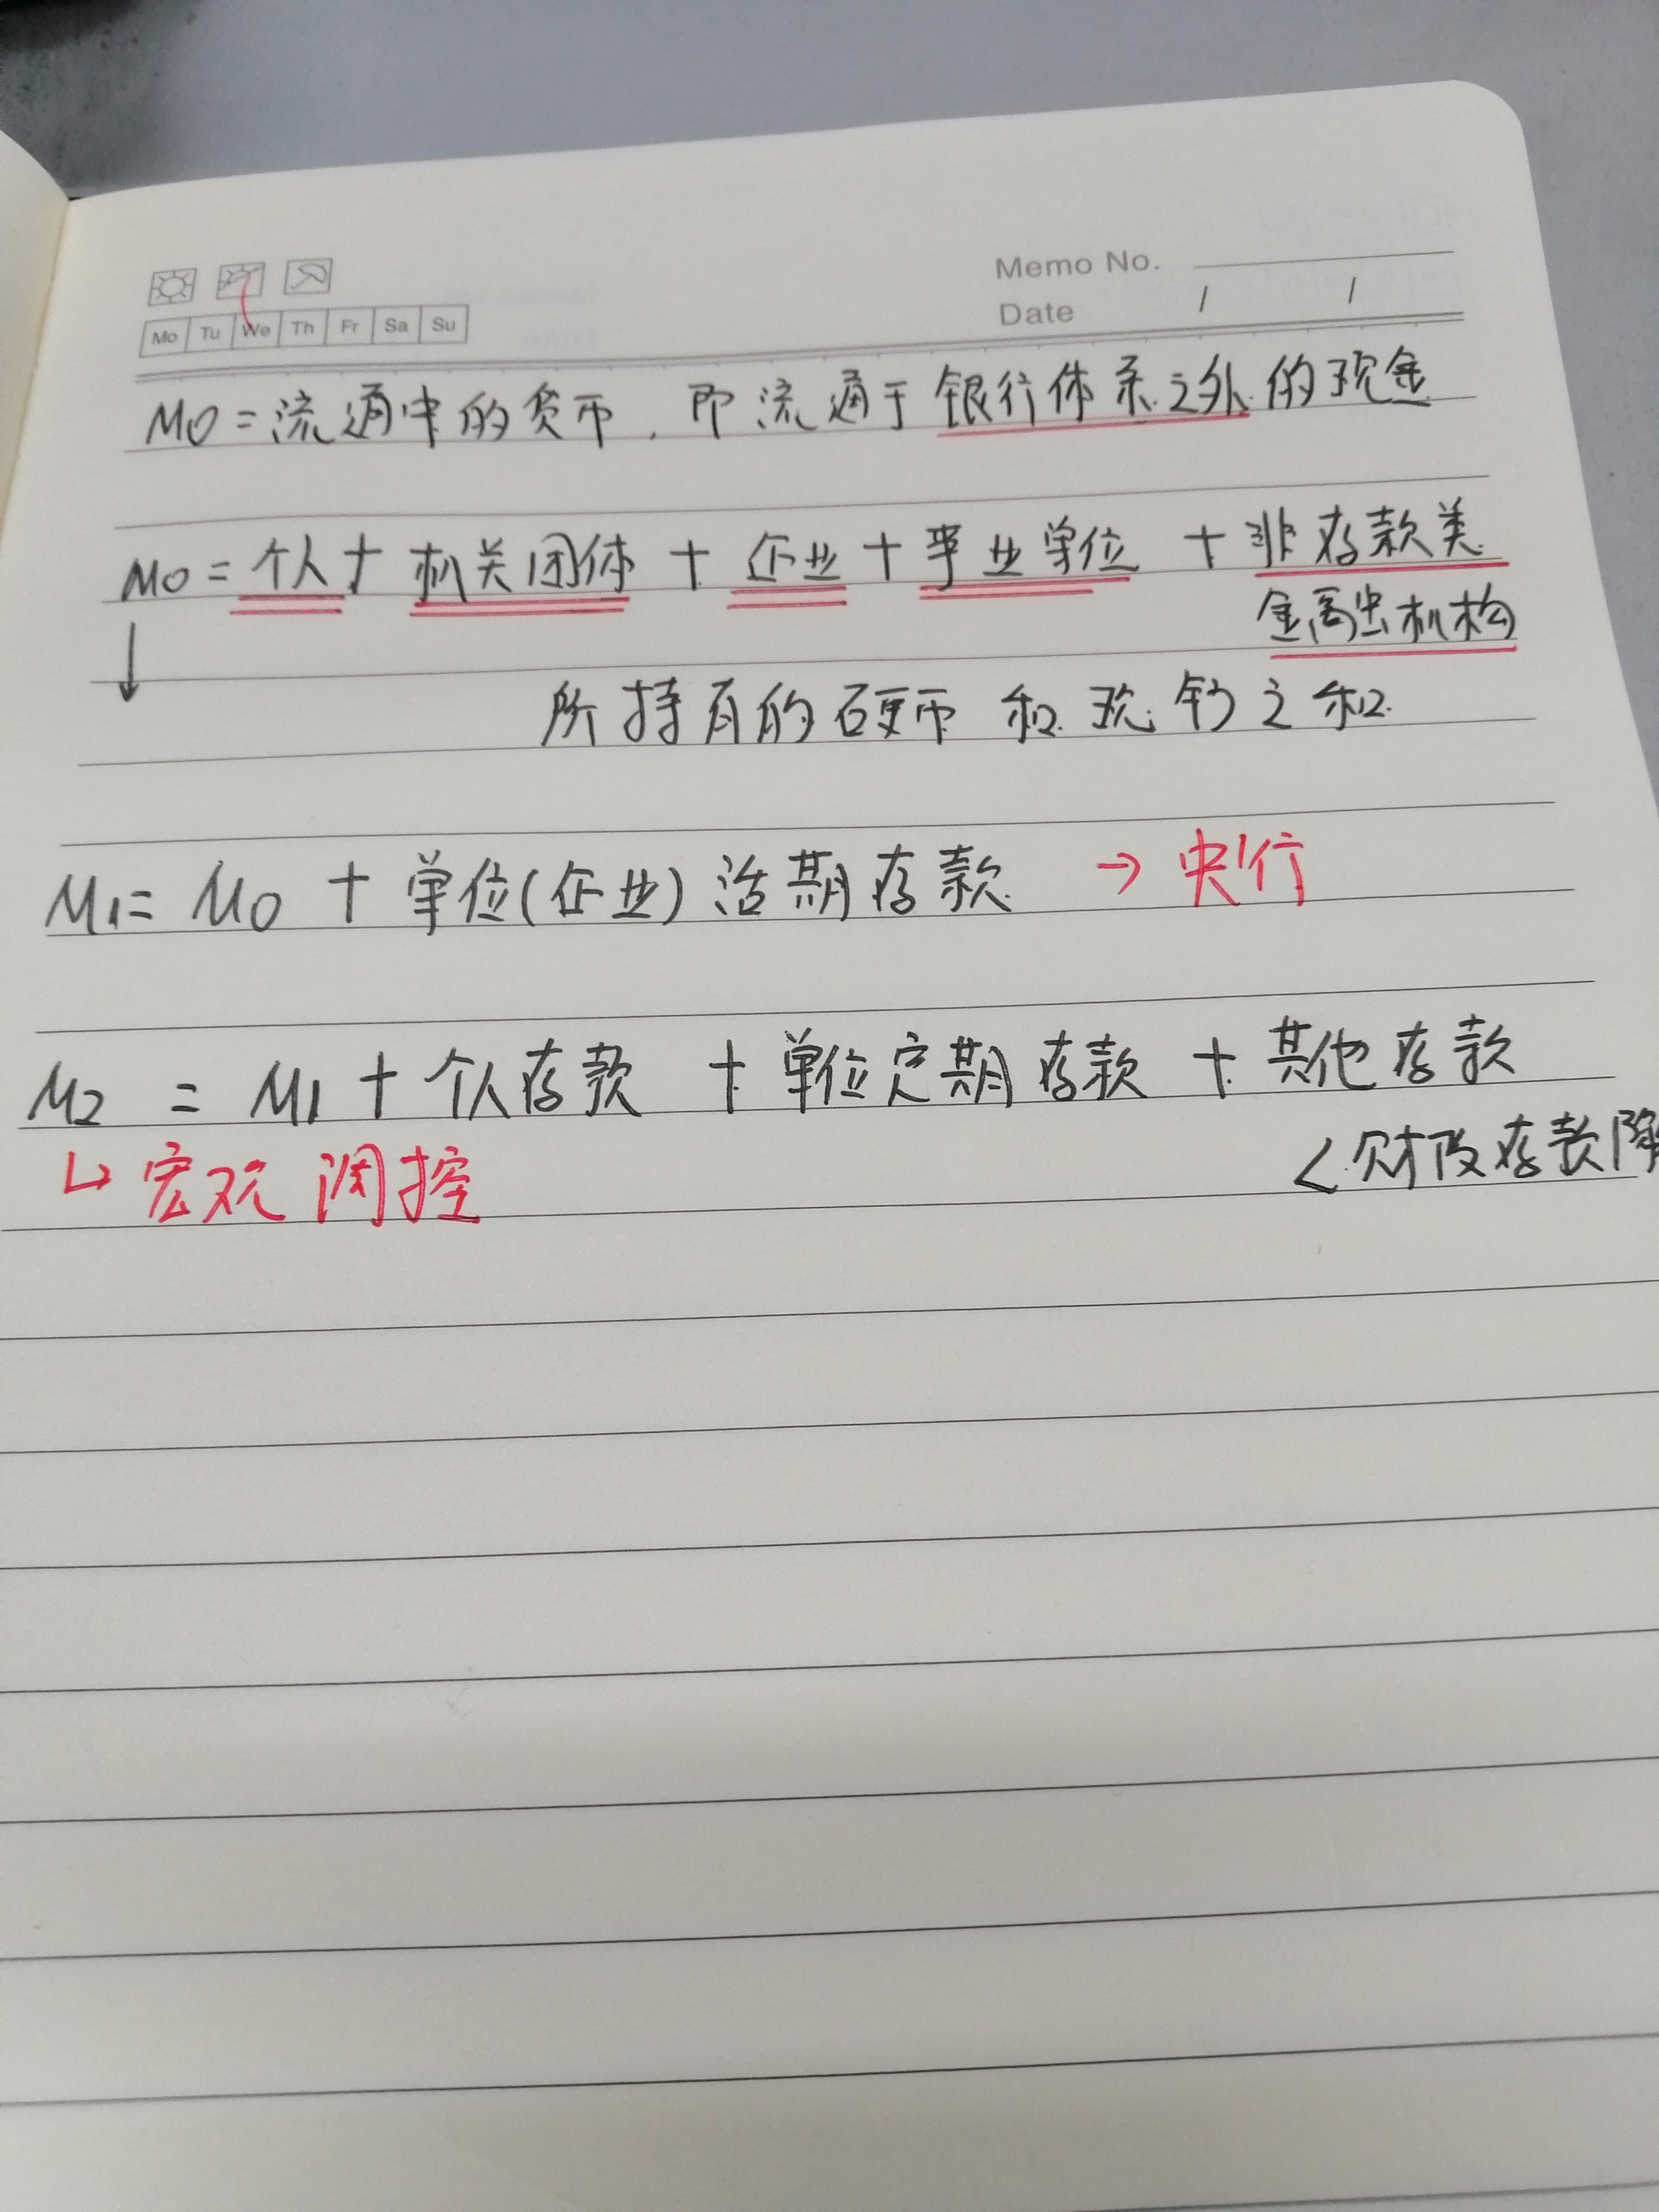 Memo No.
Mo Tu We Th Fr Sa Su
Date / /
M0=流通中的货币,即流通于银行体系之外的现金
M0=个人+机关团体+企业+事业单位+非存款类
金融机构
所持有的硬币和现钞之和
M1=M0+单位(企业)活期存款 →央行
M2=M1+个人存款+单位定期存款+其他存款
<财政存款除
↳宏观调控